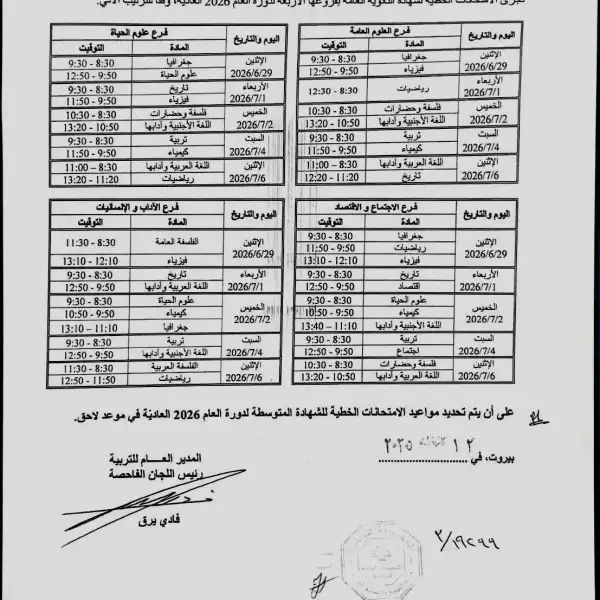 تجرى الامتحانات الخطية لشهادة الثانوية العامة بفروعها الأربعة لدورة العام 2026 العادية، وفقا للترتيب الآتي:
اليوم والتاريخ فرع العلوم العامة
المادة التوقيت
الإثنين 2026/6/29 جغرافيا 8:30 - 9:30
فيزياء 9:50 - 12:50
الأربعاء 2026/7/1 رياضيات 8:30 - 12:30
الخميس 2026/7/2 فلسفة وحضارات 8:30 - 10:30
اللغة الأجنبية وآدابها 10:50 - 13:20
السبت 2026/7/4 تربية 8:30 - 9:30
كيمياء 9:50 - 11:50
الإثنين 2026/7/6 اللغة العربية وآدابها 8:30 – 11:00
تاريخ 11:20 - 12:20
اليوم والتاريخ فرع علوم الحياة
المادة التوقيت
الإثنين 2026/6/29 جغرافيا 8:30 - 9:30
علوم الحياة 9:50 - 12:50
الأربعاء 2026/7/1 تاريخ 8:30 - 9:30
فيزياء 9:50 - 11:50
الخميس 2026/7/2 فلسفة وحضارات 8:30 - 10:30
اللغة الأجنبية وآدابها 10:50 - 13:20
السبت 2026/7/4 تربية 8:30 - 9:30
كيمياء 9:50 - 11:50
الإثنين 2026/7/6 اللغة العربية وآدابها 8:30 – 11:00
رياضيات 11:20 - 13:20
اليوم والتاريخ فرع الاجتماع و الاقتصاد
المادة التوقيت
الإثنين 2026/6/29 جغرافيا 8:30 - 9:30
رياضيات 9:50 - 11:50
فيزياء 12:10 - 13:10
الأربعاء 2026/7/1 تاريخ 8:30 - 9:30
اقتصاد 9:50 - 12:50
الخميس 2026/7/2 علوم الحياة 8:30 - 9:30
كيمياء 9:50 - 10:50
اللغة الأجنبية وآدابها 11:10 – 13:40
السبت 2026/7/4 تربية 8:30 - 9:30
اجتماع 9:50 - 12:50
الإثنين 2026/7/6 فلسفة وحضارات 8:30 - 10:30
اللغة العربية وآدابها 10:50 - 13:20
اليوم والتاريخ فرع الآداب و الإنسانيات
المادة التوقيت
الإثنين 2026/6/29 الفلسفة العامة 8:30 - 11:30
فيزياء 12:10 - 13:10
الأربعاء 2026/7/1 تاريخ 8:30 - 9:30
اللغة العربية وآدابها 9:50 - 12:50
الخميس 2026/7/2 علوم الحياة 8:30 - 9:30
كيمياء 9:50 - 10:50
جغرافيا 11:10 - 13:10
السبت 2026/7/4 تربية 8:30 - 9:30
اللغة الأجنبية وآدابها 9:50 - 12:50
الإثنين 2026/7/6 الفلسفة العربية 8:30 - 11:30
رياضيات 11:50 - 12:50
على أن يتم تحديد مواعيد الامتحانات الخطية للشهادة المتوسطة لدورة العام 2026 العادية في موعد لاحق.
بيروت، في ١٢ ٢٠٢٥
المدير العـــام للتربية
رئيس اللجان الفاحصة
فادي يرق